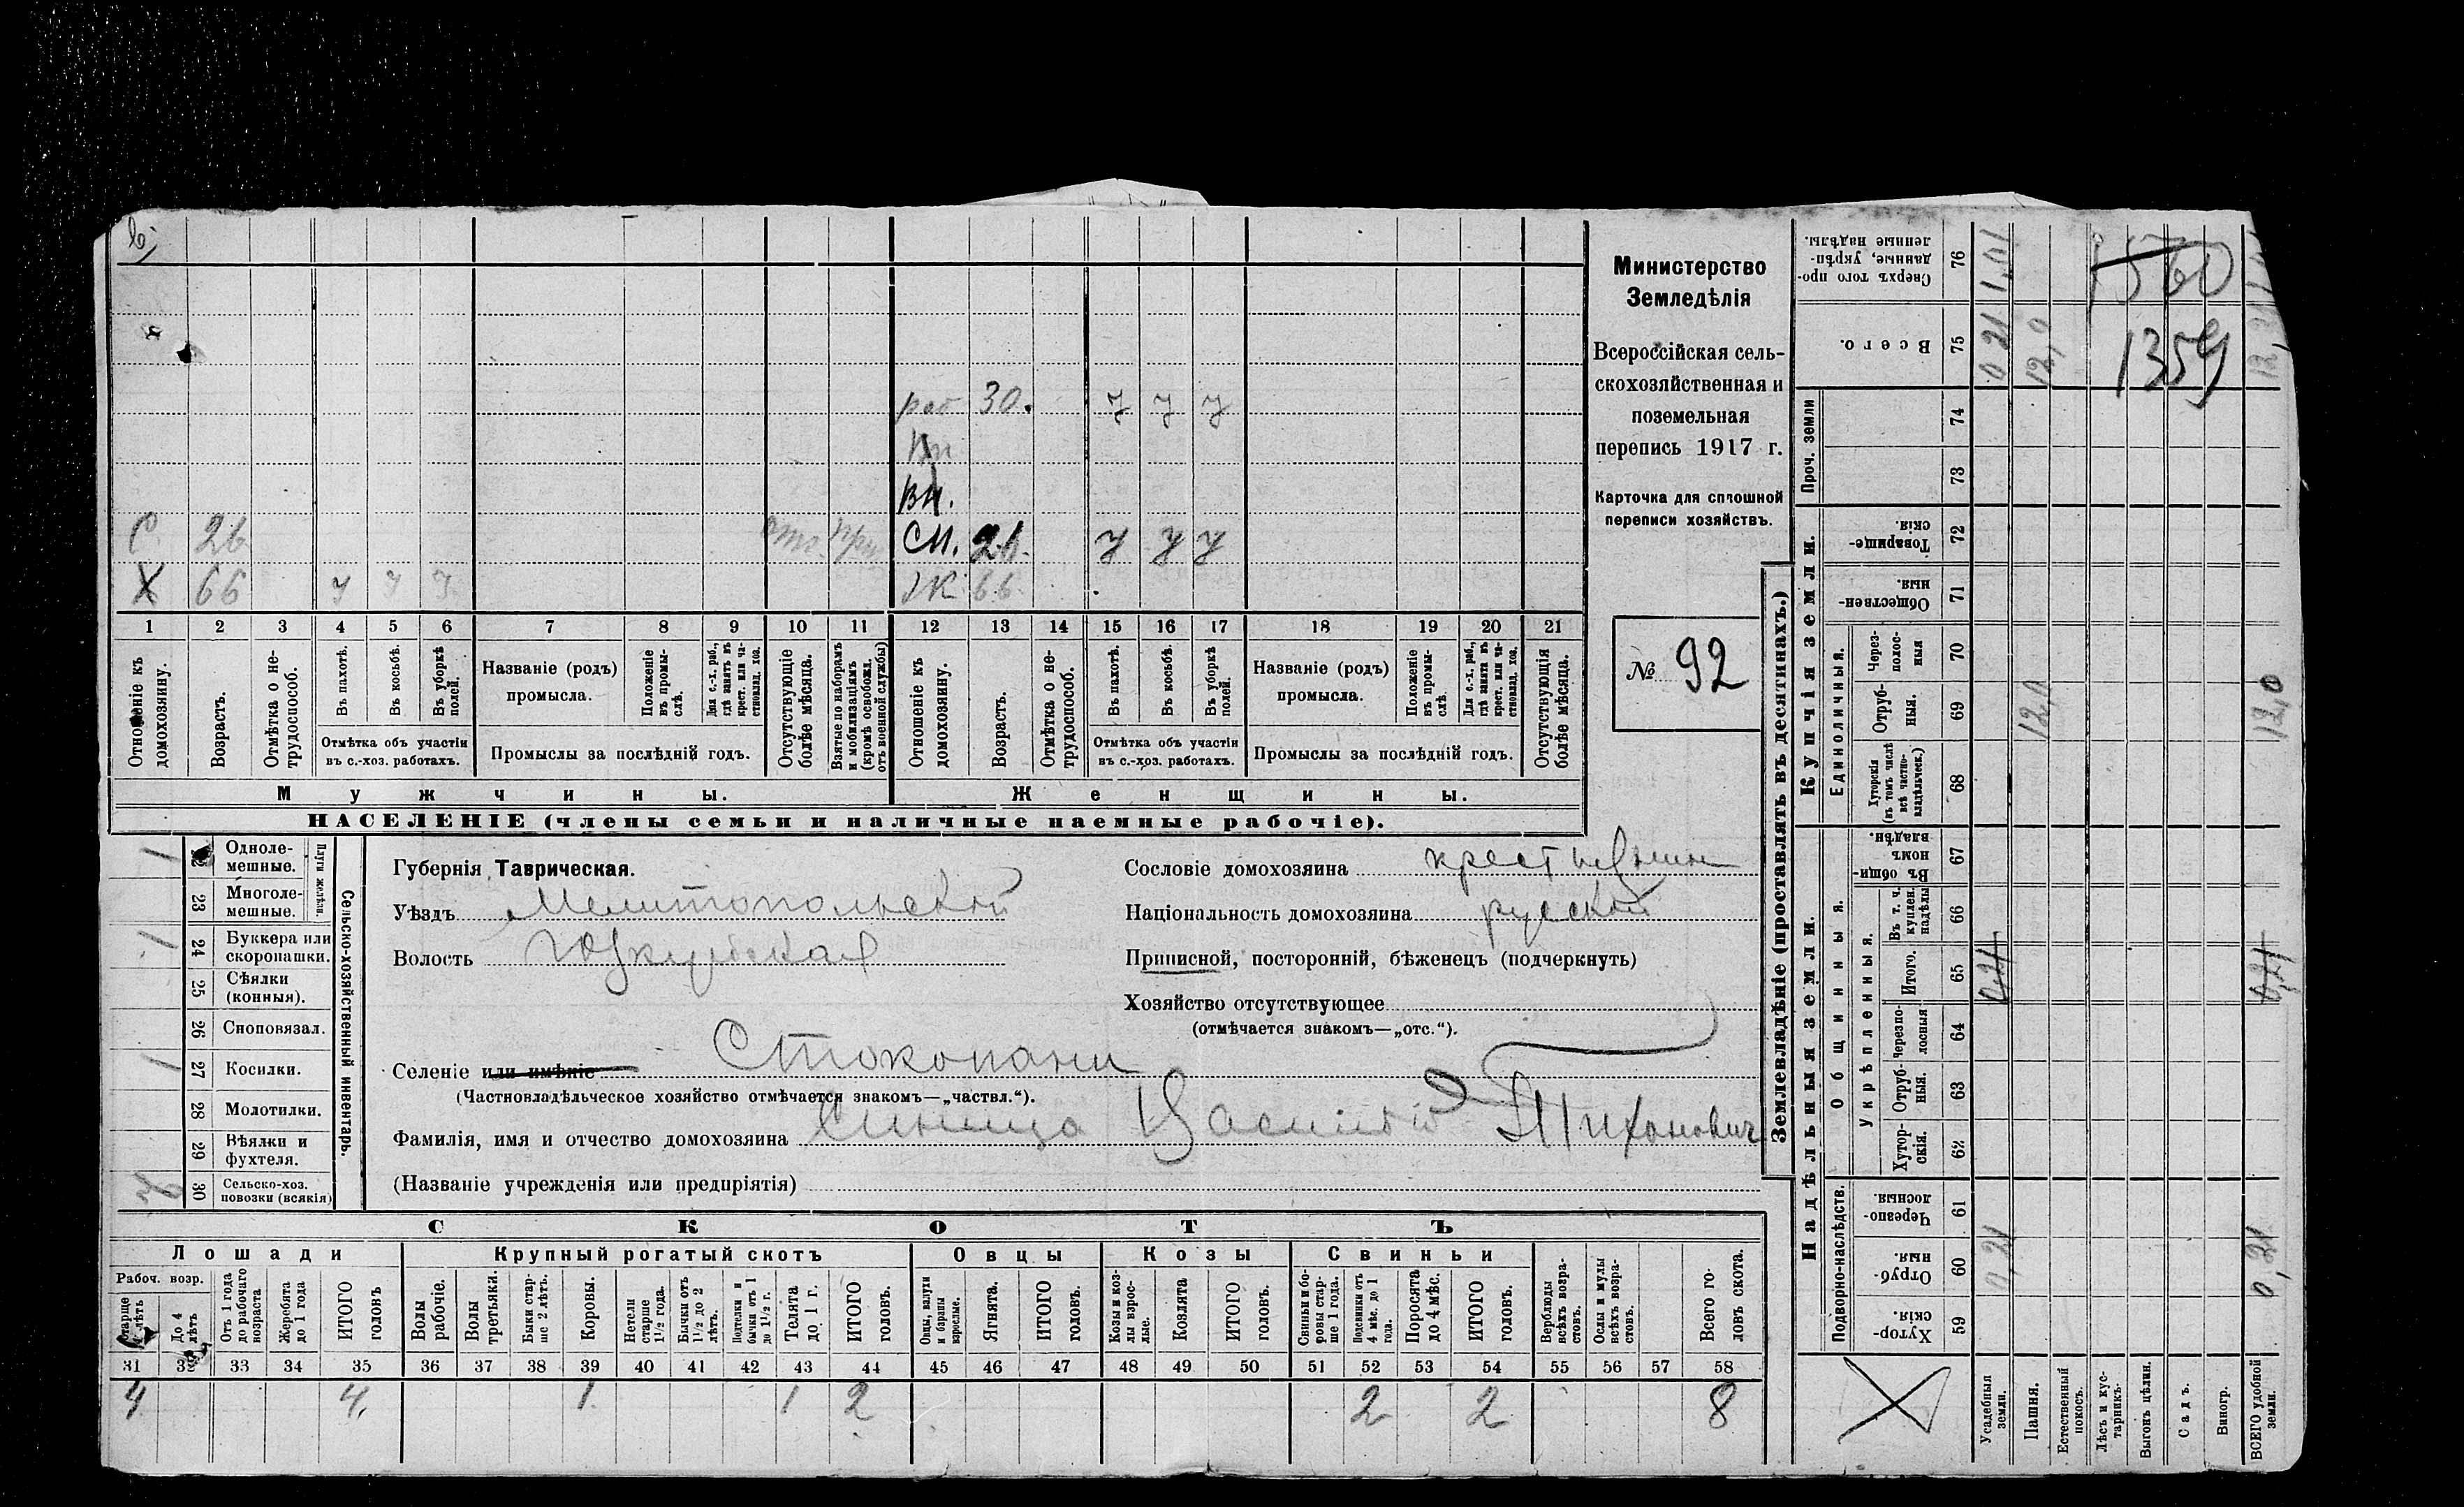 Министерство
Земледѣлія
Всероссійская сель-
скохозяйственная и
поземельная
перепись 1917 г.
Карточка для сплошной
переписи хозяйствъ.
№ 92
раб 30. У У У
Вн
Вн.
С 26 отс. СН. 26 У У У
Х 66 У У У Ж 66
1 2 3 4 5 6 7 8 9 10 11 12 13 14 15 16 17 18 19 20 21
Отношеніе къ домохозяину.
Возрастъ.
Отмѣтка о не-трудоспособ.
Въ пахотѣ.
Въ косьбѣ.
Въ уборкѣ полей.
Отмѣтка объ участіи
въ с.-хоз. работахъ.
Названіе (родъ)
промысла.
Положеніе въ промы-слѣ.
Для с.-х. раб., гдѣ занятъ въ крест. или ча-стновлад. хоз.
Промыслы за послѣдній годъ.
Отсутствующіе болѣе мѣсяца.
Взятые по наборамъ и мобилизаціямъ (кромѣ освобожд. отъ военной службы)
Отношеніе къ домохозяину.
Возрастъ.
Отмѣтка о не-трудоспособ.
Въ пахотѣ.
Въ косьбѣ.
Въ уборкѣ полей.
Отмѣтка объ участіи
въ с.-хоз. работахъ.
Названіе (родъ)
промысла.
Положеніе въ промы-слѣ.
Для с.-х. раб., гдѣ занятъ въ крест. или ча-стновлад. хоз.
Промыслы за послѣдній годъ.
Отсутствующія болѣе мѣсяца.
Мужчины.
Женщины.
НАСЕЛЕНІЕ (члены семьи и наличные наемные рабочіе).
Сельско-хозяйственный инвентарь.
Плуги желѣзн.
1 22 Одноле-мешные.
23 Многоле-мешные.
1 24 Буккера или скоропашки.
25 Сѣялки (конныя).
26 Сноповязал.
1 27 Косилки.
28 Молотилки.
29 Вѣялки и фухтеля.
30 Сельско-хоз. повозки (всякія)
Губернія Таврическая.
Уѣздъ Мелитопольскій
Волость Юзкуйская
Селеніе или имѣніе Стокопани
(Частновладѣльческое хозяйство отмѣчается знакомъ—„частвл.“).
Фамилія, имя и отчество домохозяина Синица Василій Тихоновичъ
(Названіе учрежденія или предпріятія)
Сословіе домохозяина крестьянин
Національность домохозяина русскій
Приписной, посторонній, бѣженецъ (подчеркнуть)
Хозяйство отсутствующее
(отмѣчается знакомъ—„отс.“).
СКОТЪ
Лошади
Крупный рогатый скотъ
Овцы
Козы
Свиньи
Рабоч. возр.
Старше 4 лѣтъ
До 4 лѣтъ
Отъ 1 года до рабочаго возраста
Жеребята до 1 года
ИТОГО головъ
Волы рабочіе.
Волы третьяки.
Быки стар-ше 2 лѣтъ.
Коровы.
Нетели старше 1½ года.
Бычки отъ 1½ до 2 лѣтъ.
Подтелки и бычки отъ 1 до 1½ г.
Телята до 1 г.
ИТОГО головъ.
Овцы, валухи и бараны взрослые.
Ягнята.
ИТОГО головъ.
Козы и коз-лы взрос-лые.
Козлята
ИТОГО головъ.
Свиньи и бо-ровы стар-ше 1 года.
Подсвинки отъ 4 мѣс. до 1 года.
Поросята до 4 мѣс.
ИТОГО головъ.
Верблюды всѣхъ возра-стовъ.
Ослы и мулы всѣхъ возра-стовъ.
Всего го-ловъ скота.
31 32 33 34 35 36 37 38 39 40 41 42 43 44 45 46 47 48 49 50 51 52 53 54 55 56 57 58
4 4. 1. 1 2 2 2 8
Землевладѣніе (проставлять въ десятинахъ.)
Надѣльныя земли.
Купчія земли.
Проч. земли
Подворно-наслѣдств.
Общинныя.
Укрѣпленныя.
Единоличныя.
Сверхъ того про-данные, укрѣп-ленные надѣлы. 76 1,01
Всего. 75 0 21 12,0
74
73
Товарище-скія. 72
Обществен-ныя. 71
Через-полос-ныя 70
Отруб-ныя. 69 12,0 12,0
Хуторскія (въ томъ числѣ всѣ частно-владѣльческ.) 68
Въ общи-номъ владѣн. 67
Въ т. ч. куплен. надѣлы 66
Итого. 65 0,21 0,21
Черезпо-лосныя 64
Отруб-ныя. 63
Хутор-скія. 62
Черезпо-лосныя. 61
Отруб-ныя. 60 0,21 0,21
Хутор-скія. 59
1560
1359
Усадебныя земли.
Пашня.
Естественный покосъ.
Лѣсъ и кус-тарникъ.
Выгонъ цѣлин.
Садъ.
Виногр.
ВСЕГО удобной земли.